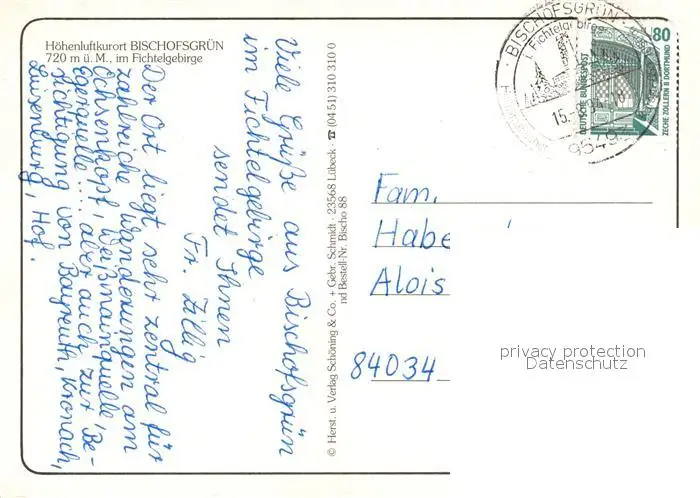 Höhenluftkurort BISCHOFSGRÜN
720 m ü. M., im Fichtelgebirge
Viele Grüße aus Bischofsgrün
im Fichtelgebirge
sendet Ihnen
Fr. Zillig
Der Ort liegt sehr zentral für
zahlreiche Wanderungen am
Ochsenkopf, Weißmainquelle,
Egerquelle... aber auch zur Be-
sichtigung von Bayreuth, Kronach,
Luisenburg, Hof.
© Herst. u. Verlag Schöning & Co. + Gebr. Schmidt · 23568 Lübeck · ☎ (04 51) 310 310 0
nd Bestell-Nr. Bischo 88
BISCHOFSGRÜN
i. Fichtelgebirge
15.
9549
80
DEUTSCHE BUNDESPOST
ZECHE ZOLLERN II DORTMUND
Fam.
Habe
Alois
84034
privacy protection
Datenschutz